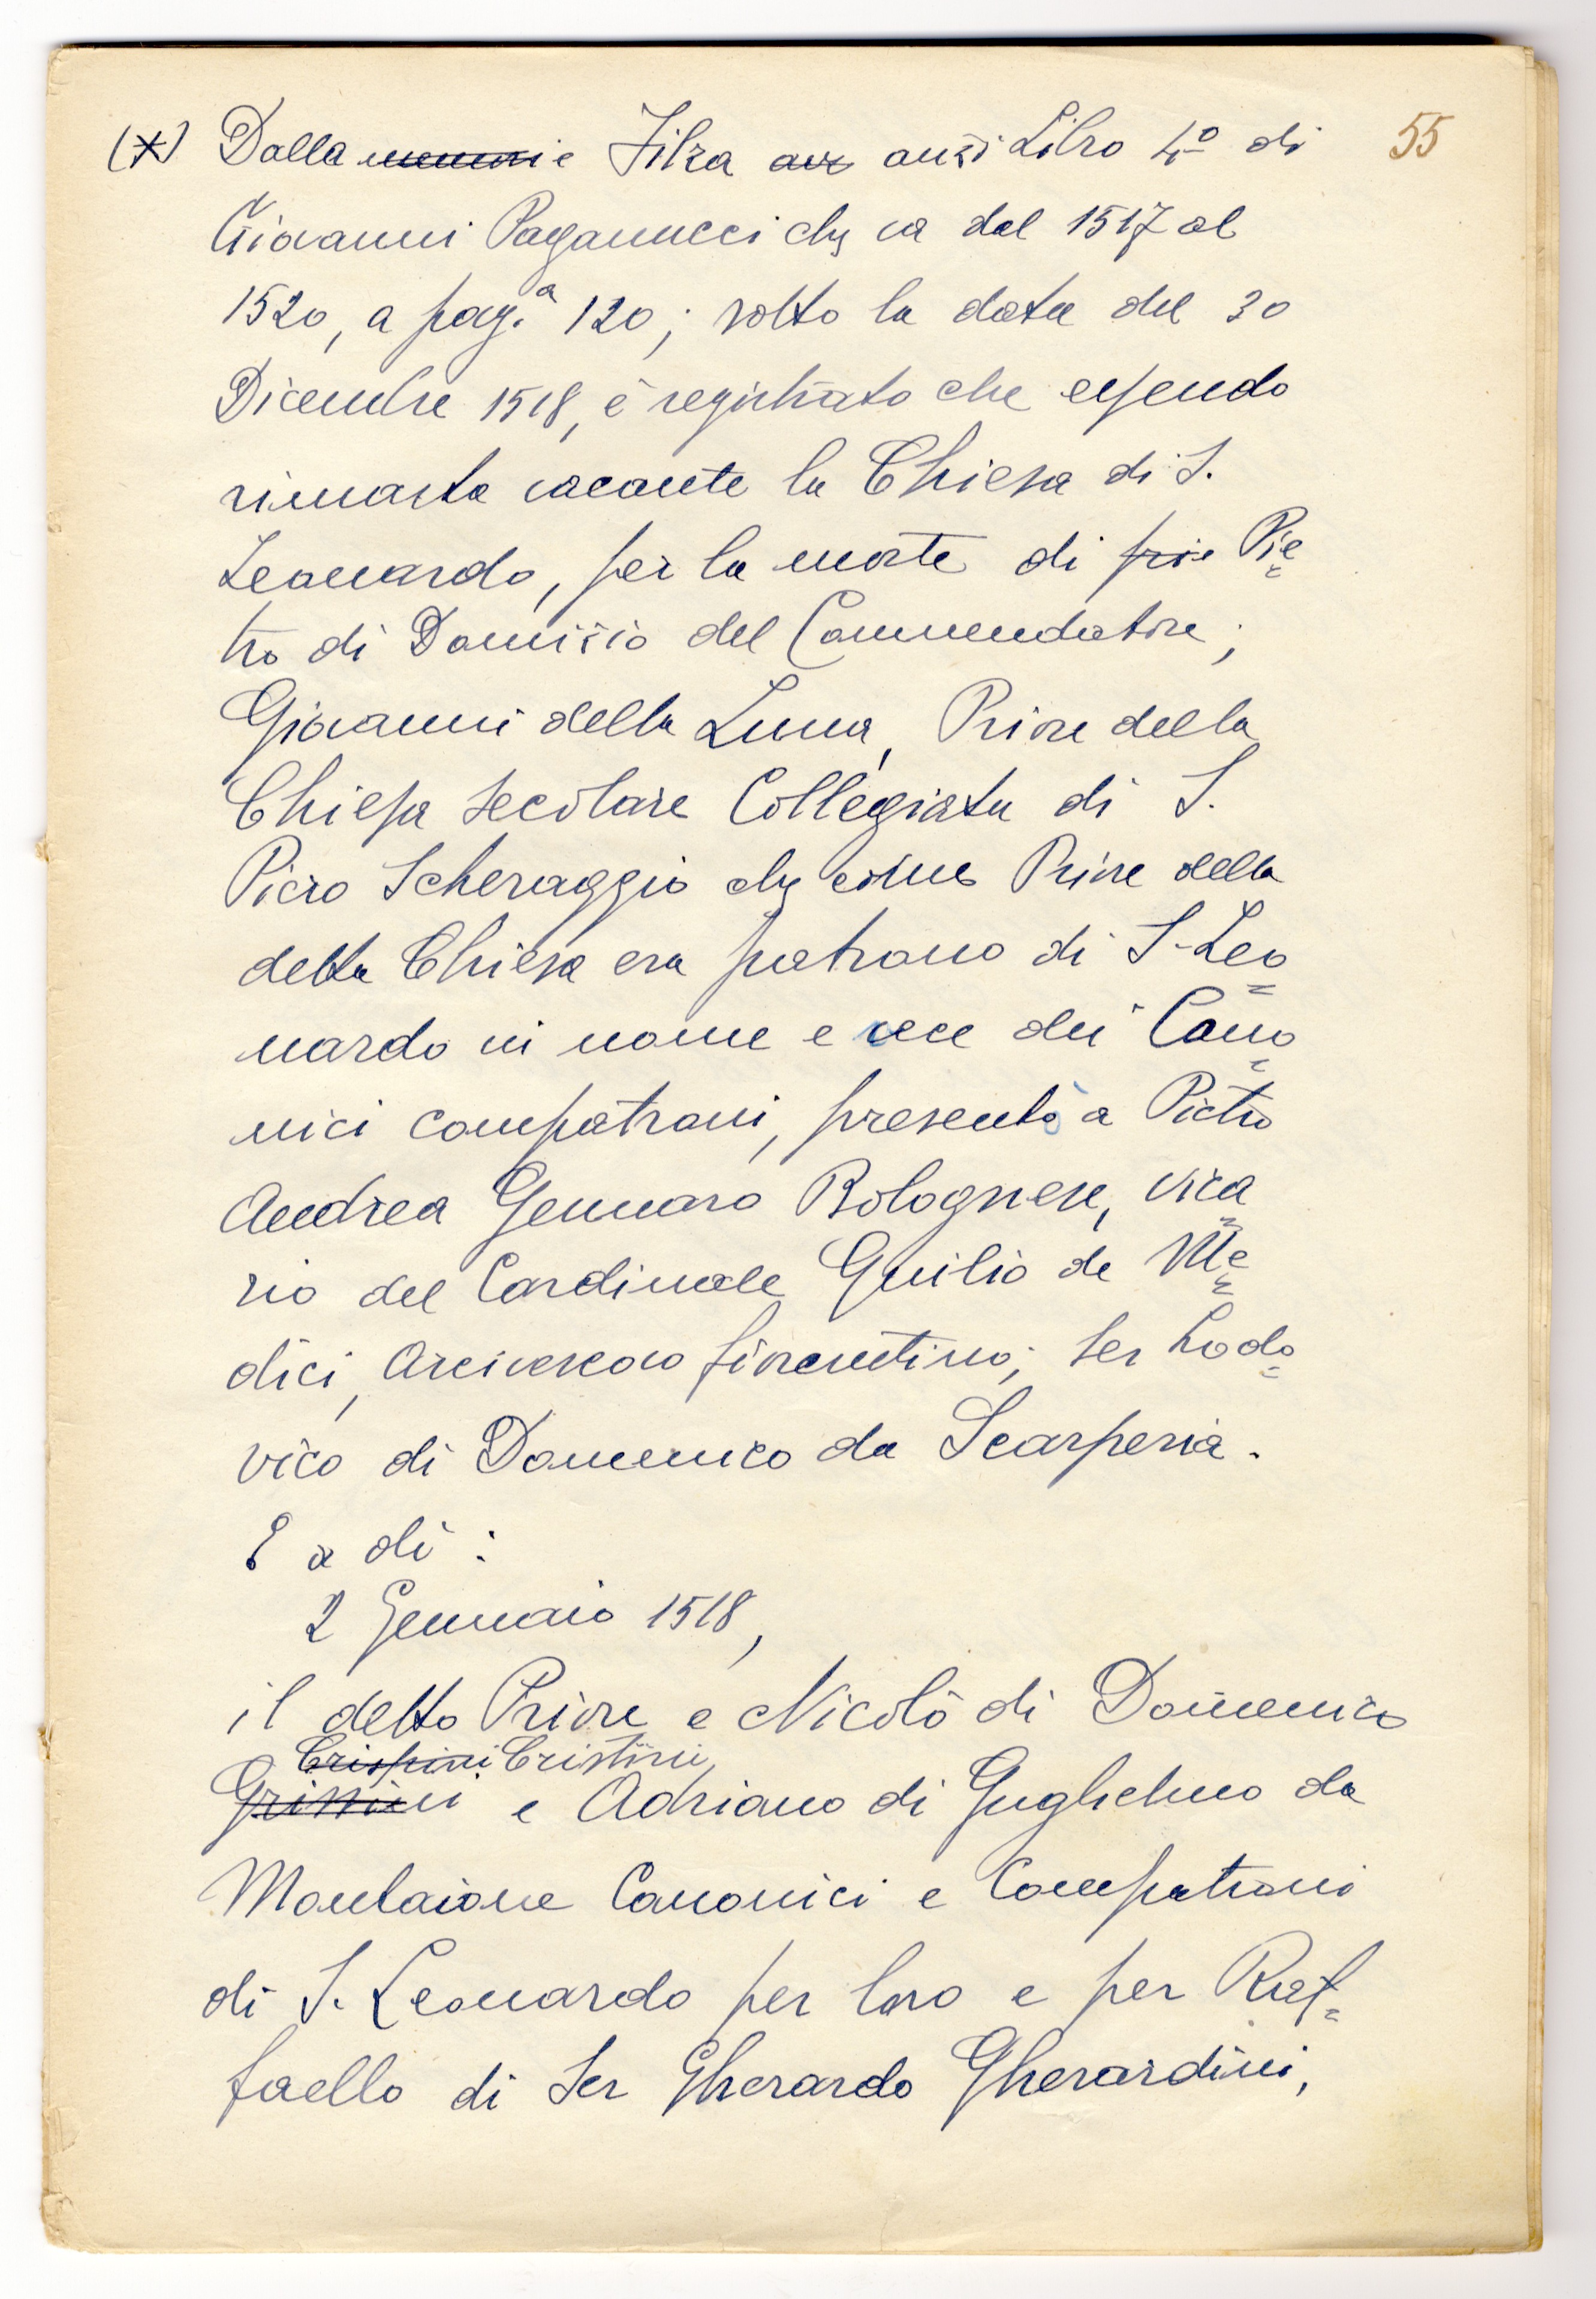 (*) Dalla memorie Filza anz anzi Libro 4º di 55
Giovanni Paganucci che va dal 1517 al
1520, a pag.ª 120; sotto la data del 30
Dicembre 1518, è registrato che essendo
rimasta vacante la Chiesa di S.
Leonardo, per la morte di prie Pie=
tro di Domizio del Commendatore;
Giovanni della Luna, Priore della
Chiesa secolare Collegiata di S.
Piero Scheraggio che come Priore della
detta Chiesa era patrono di S. Leo=
nardo in nome e vece dei Cano=
nici compatroni, presentò a Pietro
Andrea Gennaro Bolognese, vica=
rio del Cardinale Guilio de Me=
dici, Arcivescovo fiorentino; ser Lodo=
vico di Domenico da Scarperia.
E a dì :
2 Gennaio 1518,
il detto Priore e Nicolò di Domenico
Crispini Cristini
e Adriano di Guglielmo da
Montaione Canonici e Compatroni
di S. Leonardo per loro e per Raf=
faello di Ser Gherardo Gherardini,